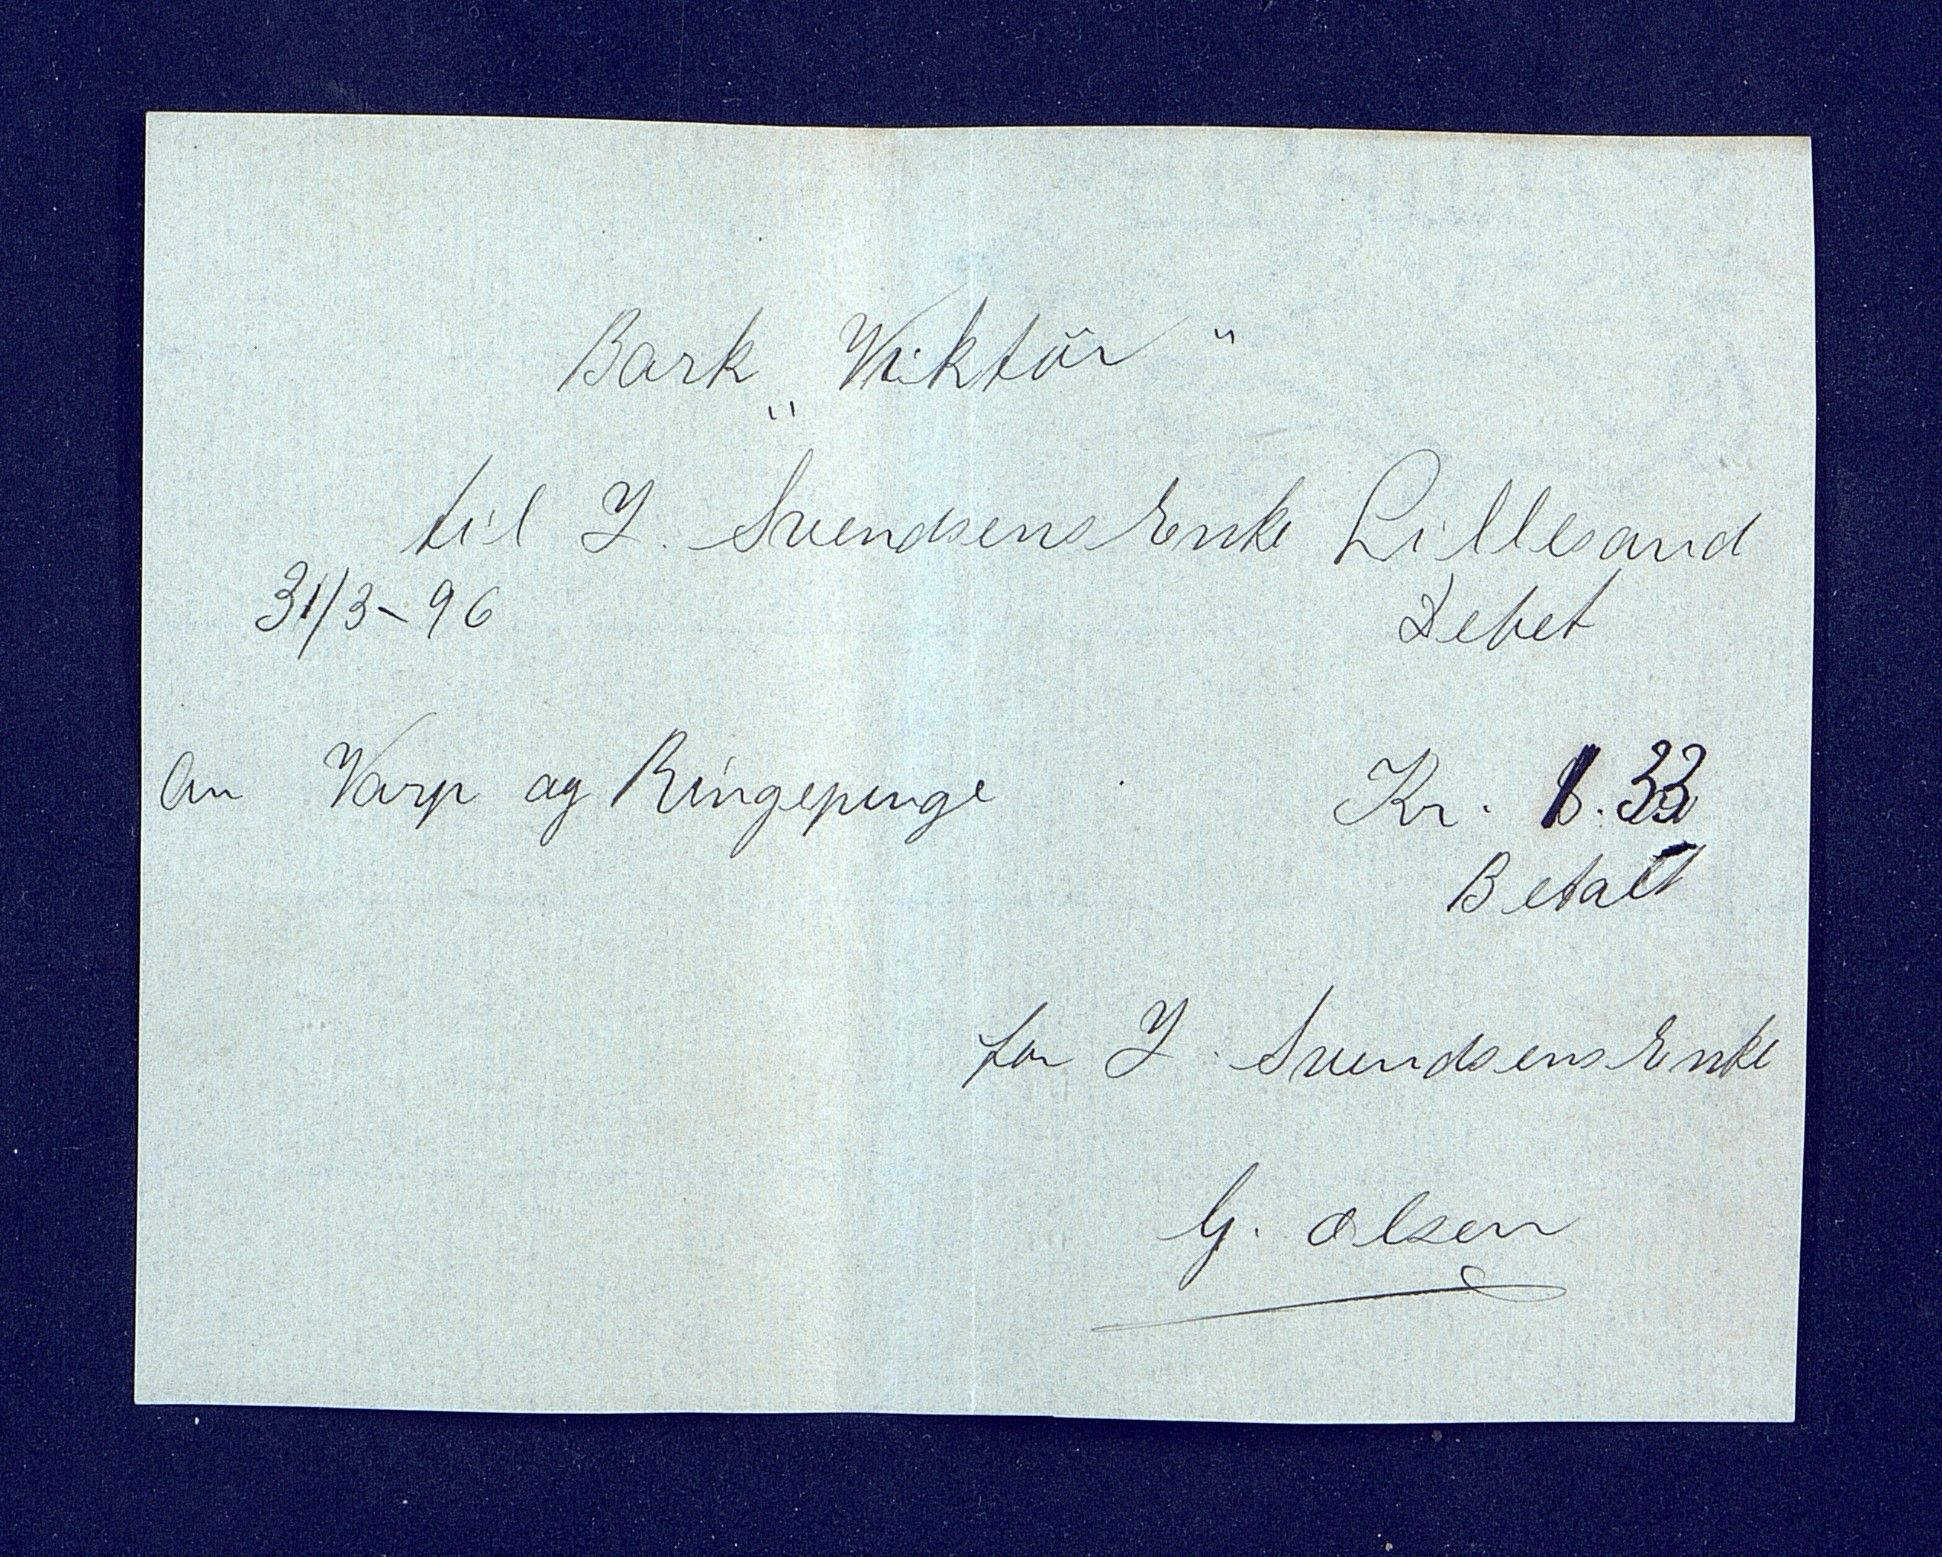 Bark „Viktör“
til J. Svendsens Enke Lillesand
31/3-96 Debet
An Varp og Ringepenge Kr. 8.33
Betalt
for J. Svendsens Enke
G. Olsen